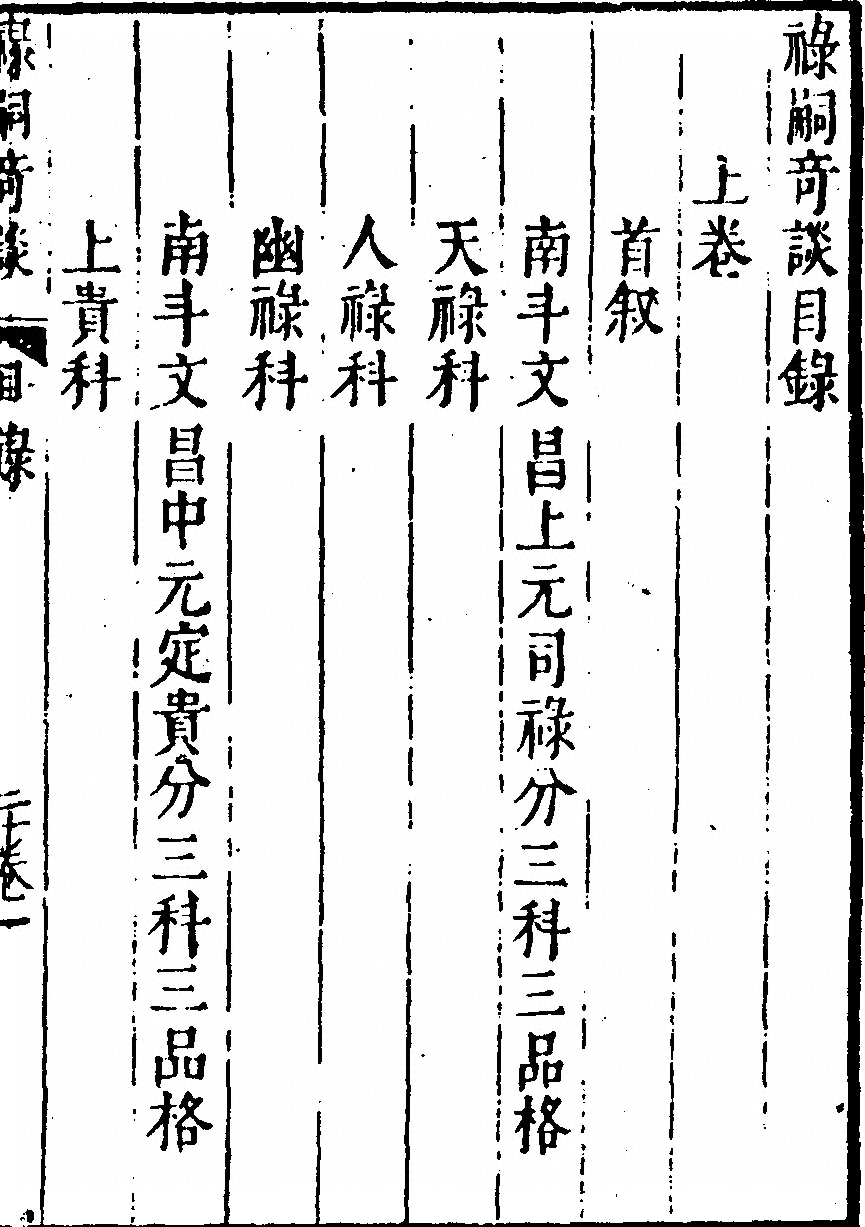 祿嗣奇談目錄
上卷
首叙
南斗文昌上元司祿分三科三品格
天祿科
人祿科
幽祿科
南斗文昌中元定貴分三科三品格
上貴科
祿嗣奇談
目錄
卷一